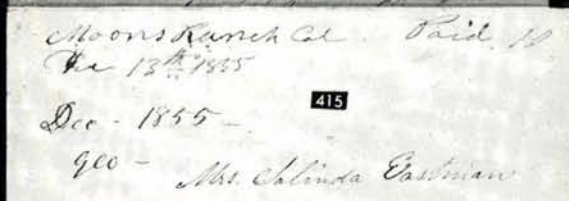 Moons Ranch Cal Paid 10
13th 1855
415
Dec - 1855 -
geo - Mrs. Salinda Eastman